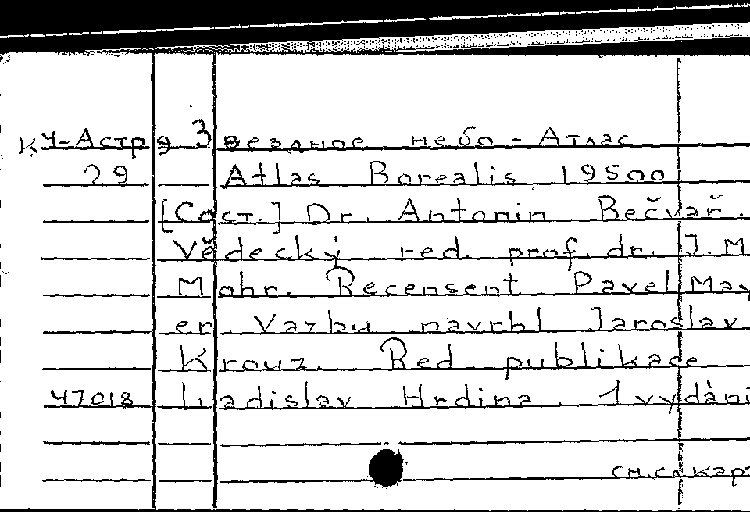 К Ч-Астр я Звездное небо - Атлас
29 Atlas Borealis 19500
[Сост.] Dr. Antonin Bečvař.
Vědecký red. prof. dr. J.M
Mohr. Recensent Pavel May
er. Vazbu navrhl Jaroslav
Krouz. Red publikace
47018 Ladislav Hrdina. 1 vydáni
см.сл карт